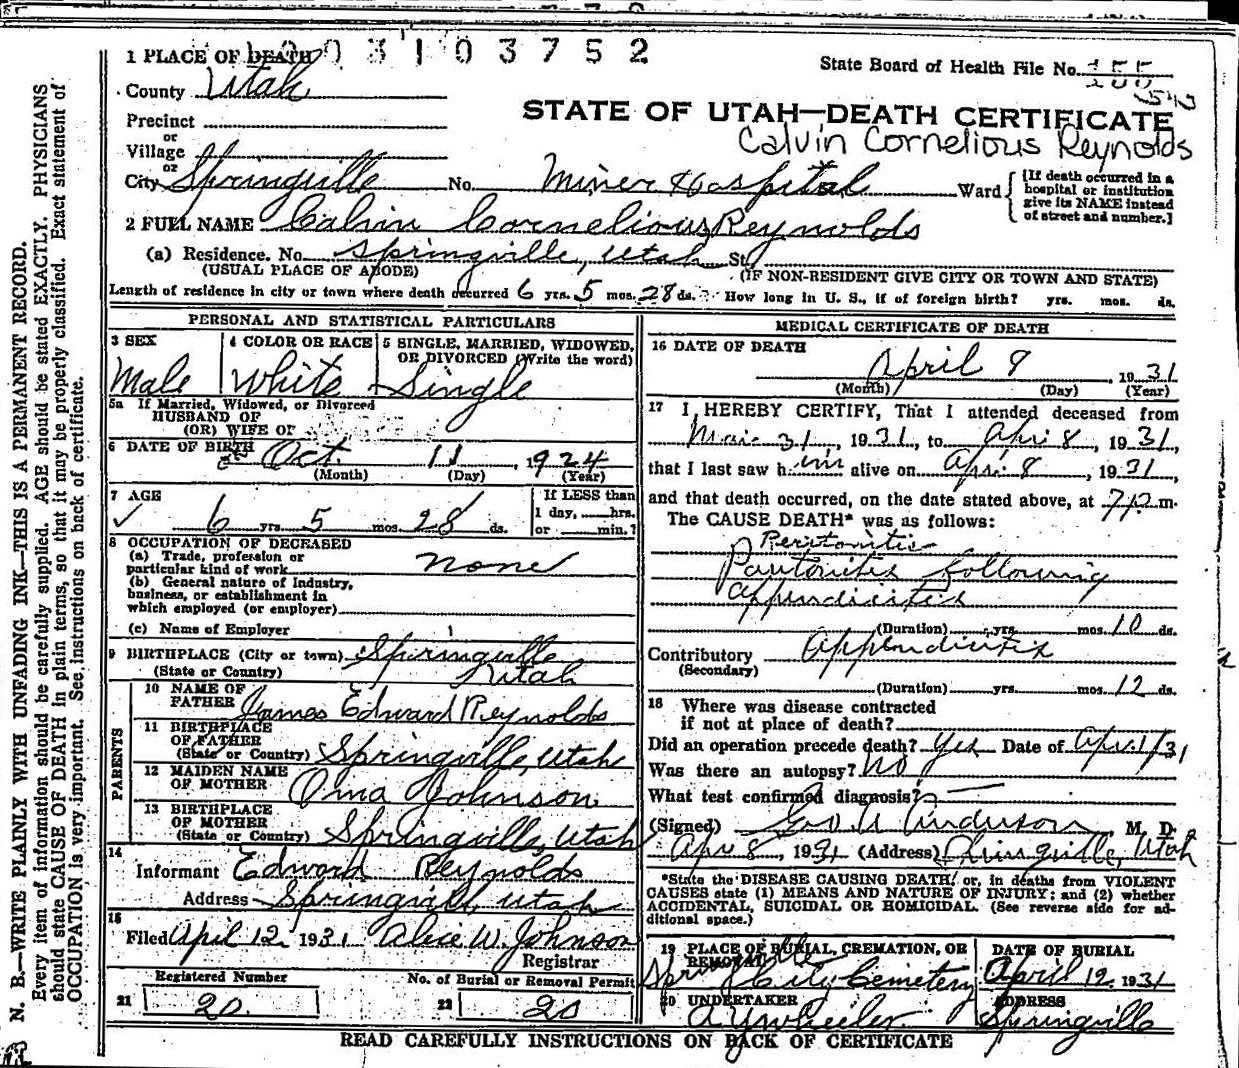 1 PLACE OF DEATH
003103752
State Board of Health File No. 155
County Utah
STATE OF UTAH—DEATH CERTIFICATE
Precinct
or
Village
Calvin Cornelious Reynolds
or
City Springville No. Miner Hospital Ward
[If death occurred in a hospital or institution give its NAME instead of street and number.]
2 FULL NAME Calvin Cornelious Reynolds
(a) Residence. No. Springville, Utah St.
(USUAL PLACE OF ABODE) (IF NON-RESIDENT GIVE CITY OR TOWN AND STATE)
Length of residence in city or town where death occurred 6 yrs. 5 mos. 28 ds. How long in U. S., if of foreign birth? yrs. mos. ds.
PERSONAL AND STATISTICAL PARTICULARS
3 SEX
Male
4 COLOR OR RACE
White
5 SINGLE, MARRIED, WIDOWED, OR DIVORCED (Write the word)
Single
5a If Married, Widowed, or Divorced
HUSBAND OF
(OR) WIFE OF
6 DATE OF BIRTH Oct. 11, 1924
(Month) (Day) (Year)
7 AGE
6 yrs. 5 mos. 28 ds.
If LESS than
1 day, hrs.
or min.?
8 OCCUPATION OF DECEASED
(a) Trade, profession or
particular kind of work none
(b) General nature of Industry,
business, or establishment in
which employed (or employer)
(c) Name of Employer
9 BIRTHPLACE (City or town) Springville
(State or Country) Utah
PARENTS
10 NAME OF
FATHER James Edward Reynolds
11 BIRTHPLACE
OF FATHER
(State or Country) Springville, Utah
12 MAIDEN NAME
OF MOTHER Oma Johnson
13 BIRTHPLACE
OF MOTHER
(State or Country) Springville, Utah
14
Informant Edward Reynolds
Address Springville, Utah
15
Filed April 12 1931 Alice W. Johnson
Registrar
Registered Number
21 20
No. of Burial or Removal Permit
22 20
MEDICAL CERTIFICATE OF DEATH
16 DATE OF DEATH
April 8, 1931
(Month) (Day) (Year)
17 I HEREBY CERTIFY, That I attended deceased from
Mar. 31, 1931, to Apr. 8, 1931
that I last saw him alive on Apr. 8, 1931,
and that death occurred, on the date stated above, at 7 P.m.
The CAUSE DEATH* was as follows:
Peritonitis
Peritonitis following
appendicitis
(Duration) yrs. mos. 10 ds.
Contributory Appendicitis
(Secondary)
(Duration) yrs. mos. 12 ds.
18 Where was disease contracted
if not at place of death?
Did an operation precede death? Yes Date of Apr. 1/31
Was there an autopsy? No
What test confirmed diagnosis?
(Signed) Geo. A. Anderson, M. D.
Apr 8, 1931 (Address) Springville, Utah
*State the DISEASE CAUSING DEATH, or, in deaths from VIOLENT
CAUSES state (1) MEANS AND NATURE OF INJURY; and (2) whether
ACCIDENTAL, SUICIDAL OR HOMICIDAL. (See reverse side for ad-
ditional space.)
19 PLACE OF BURIAL, CREMATION, OR
REMOVAL
Springville City Cemetery
DATE OF BURIAL
April 12, 1931
20 UNDERTAKER
A Y Wheeler
ADDRESS
Springville
READ CAREFULLY INSTRUCTIONS ON BACK OF CERTIFICATE
N. B.—WRITE PLAINLY WITH UNFADING INK—THIS IS A PERMANENT RECORD.
Every item of information should be carefully supplied. AGE should be stated EXACTLY. PHYSICIANS
should state CAUSE OF DEATH in plain terms, so that it may be properly classified. Exact statement of
OCCUPATION is very important. See instructions on back of certificate.